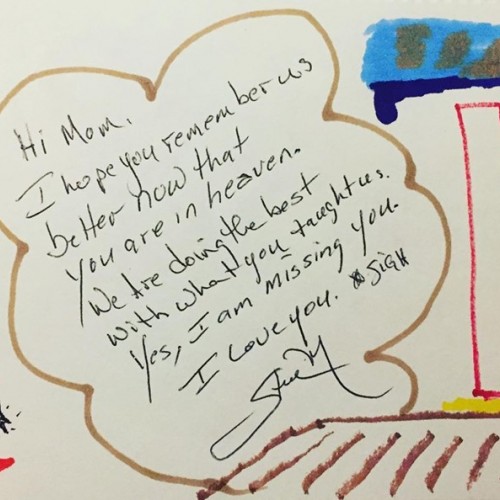 Hi Mom.
I hope you remember us
better now that
you are in heaven.
We Are doing the best
with what you taught us.
Yes, I am missing you.
I Love you. *SIGH